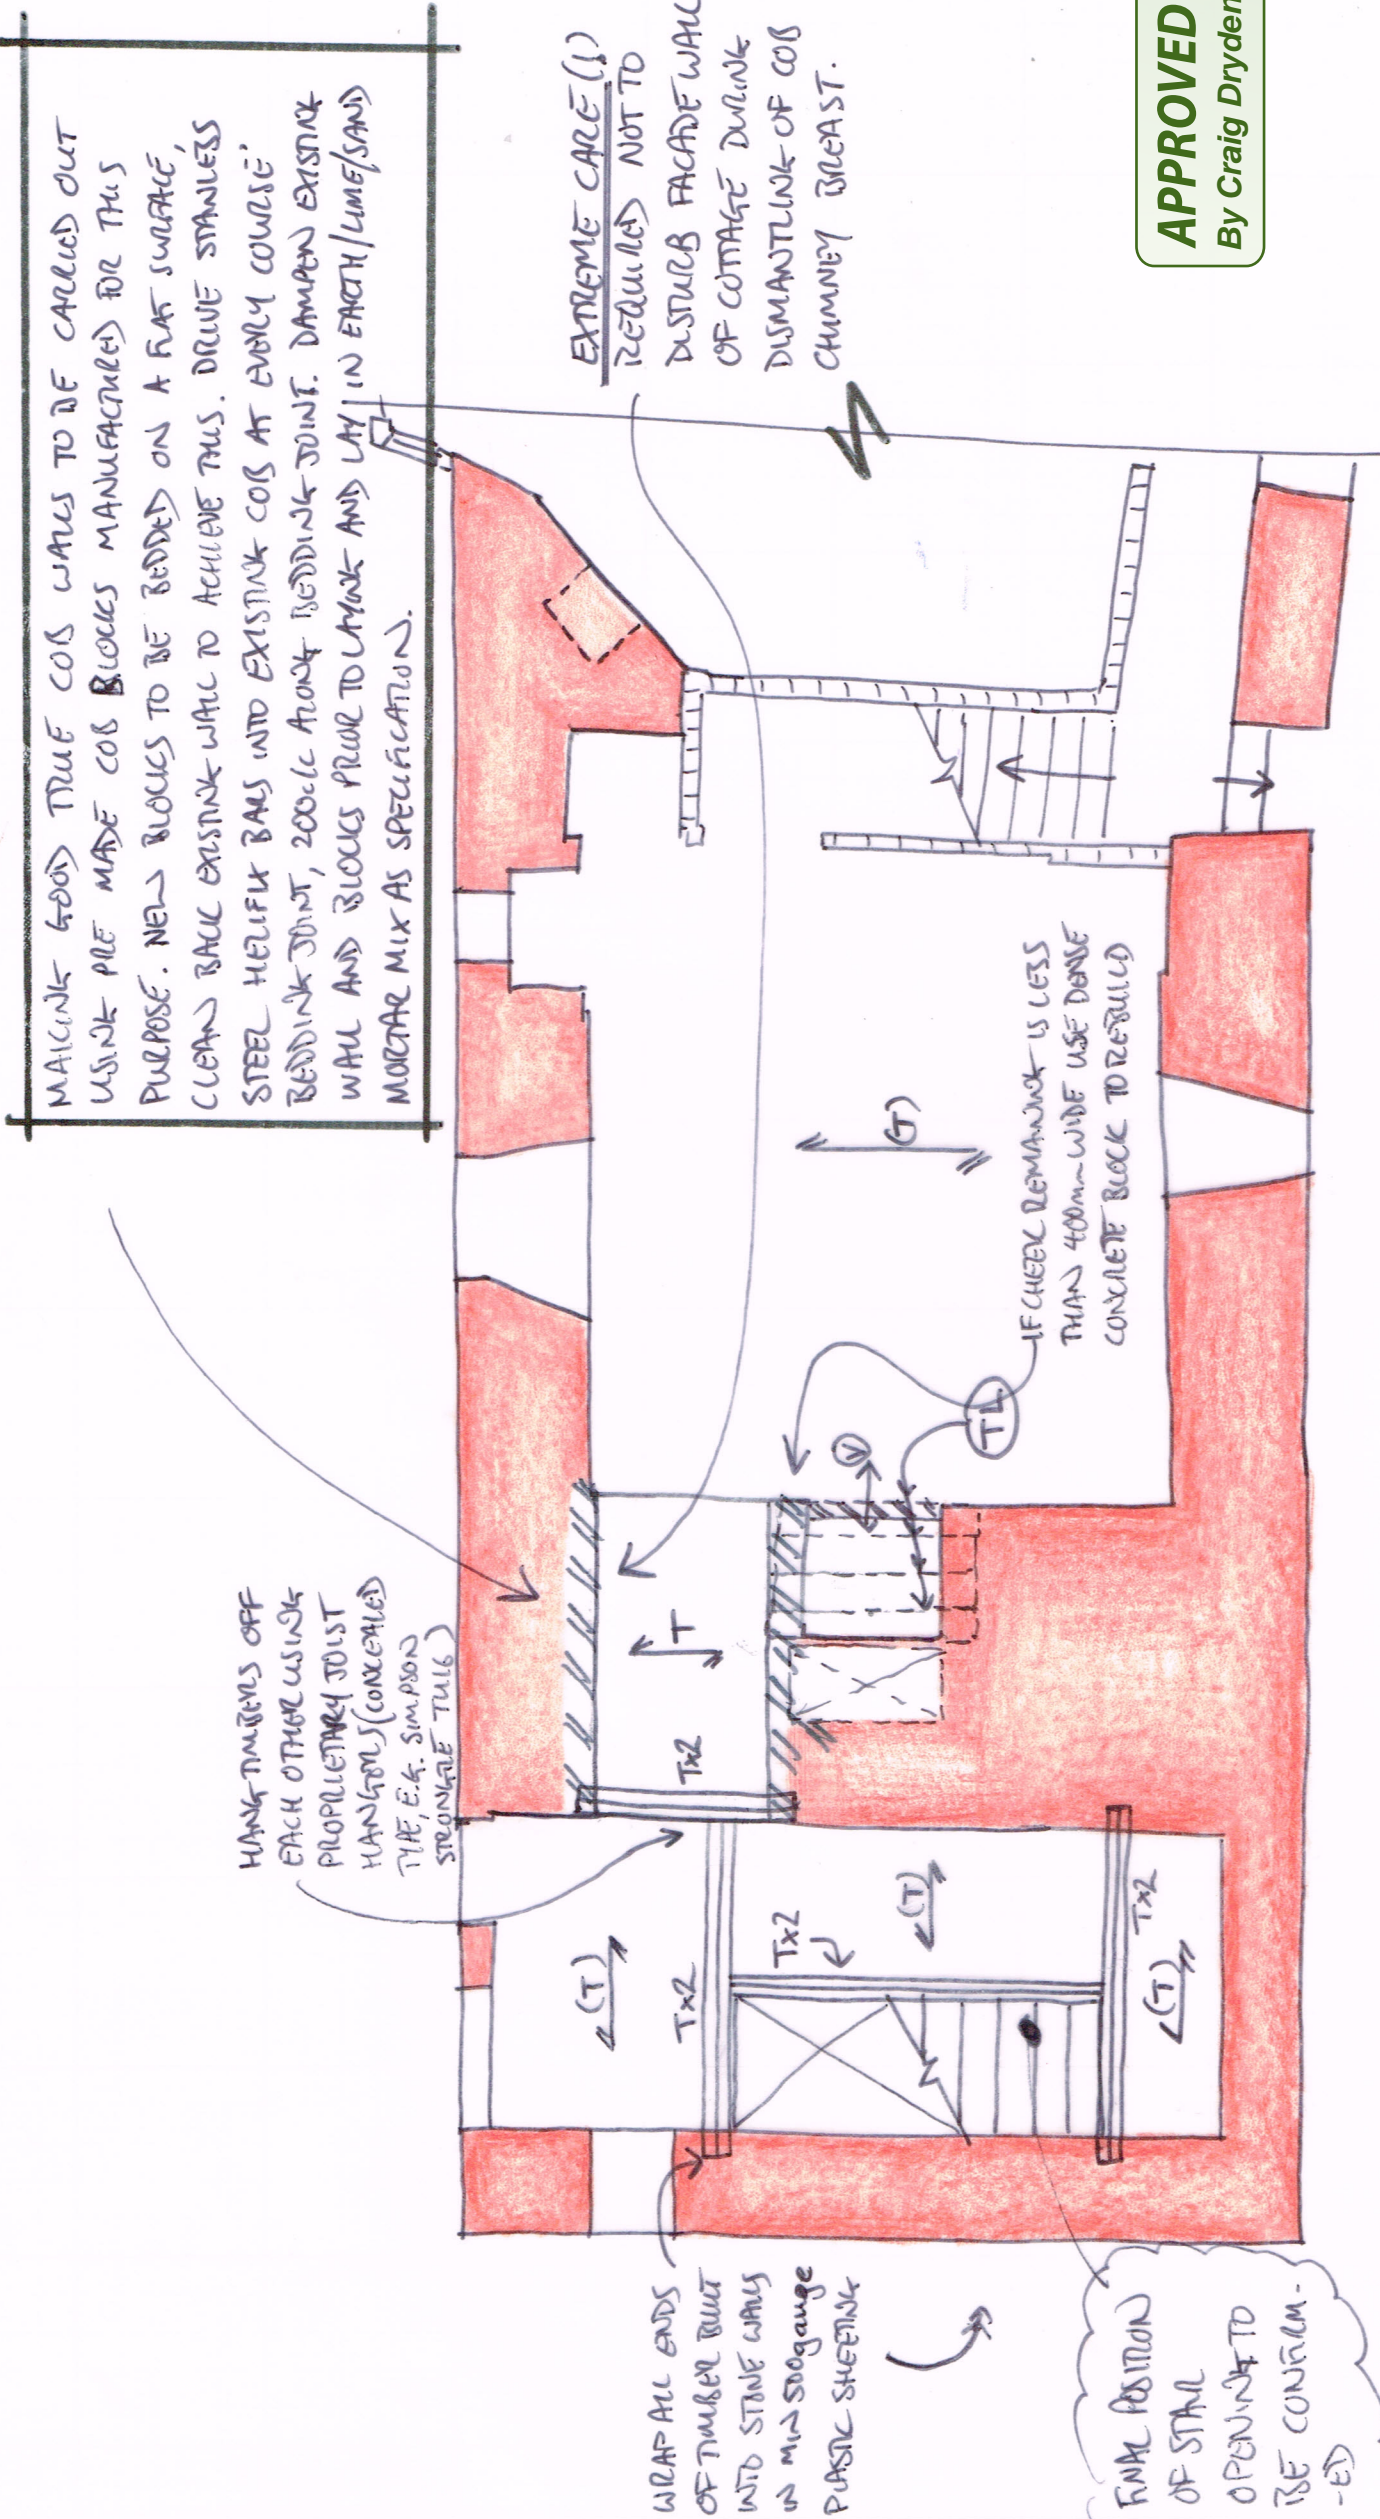 MAKING GOOD TRUE COB WALLS TO BE CARRIED OUT
USING PRE MADE COB BLOCKS MANUFACTURED FOR THIS
PURPOSE. NEW BLOCKS TO BE BEDDED ON A FLAT SURFACE,
CLEAN BACK EXISTING WALL TO ACHIEVE THIS. DRIVE STANLESS
STEEL HELIFIX BARS INTO EXISTING COB AT EVERY COURSE
BEDDING JOINT, 200c/c ALONG BEDDING JOINT. DAMPEN EXISTING
WALL AND BLOCKS PRIOR TO LAYING AND LAY IN EARTH/LIME/SAND
MORTAR MIX AS SPECIFICATION.
EXTREME CARE (!)
REQUIRED NOT TO
DISTURB FACADE WALL
OF COTTAGE DURING
DISMANTLING OF COB
CHIMNEY BREAST.
APPROVED
By Craig Dryden
HANG TIMBERS OFF
EACH OTHER USING
PROPRIETARY JOIST
HANGERS (CONCEALED
TYPE, E.G. SIMPSON
STRONGTIE TU16)
(T)
IF CHEEK REMAINING IS LESS
THAN 400mm WIDE USE DENSE
CONCRETE BLOCK TO REBUILD
TL
V
T
Tx2
(T)
Tx2
Tx2
(T)
Tx2
(T)
WRAP ALL ENDS
OF TIMBER BUILT
INTO STONE WALLS
IN MIN 500gauge
PLASTIC SHEETING
FINAL POSITION
OF STAIR
OPENING TO
BE CONFIRM-
-ED